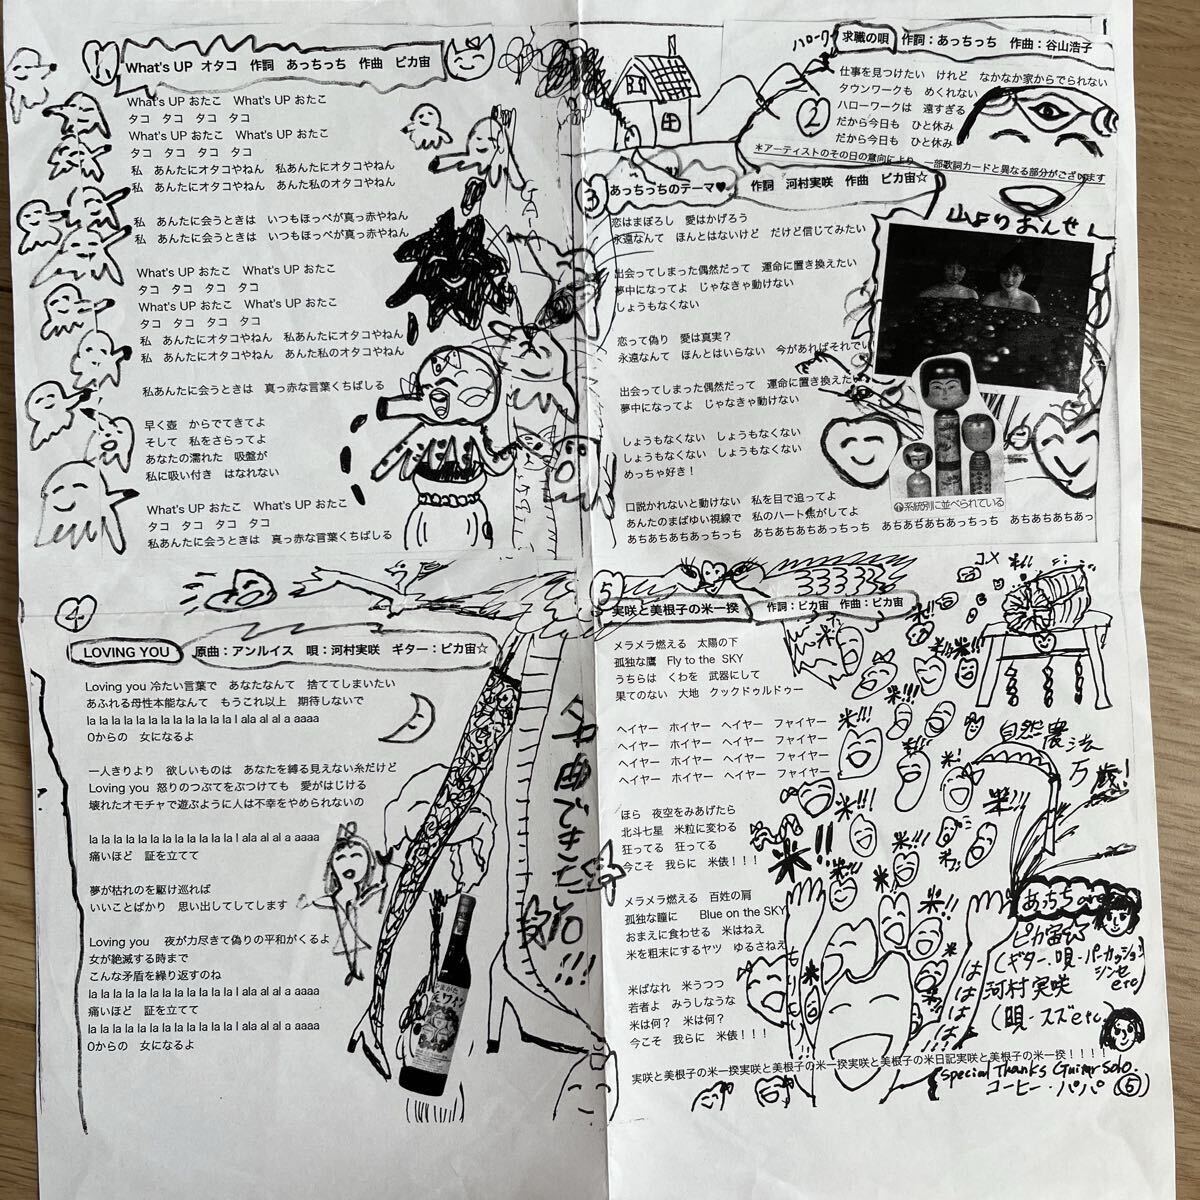 1
What's UP オタコ 作詞 あっちっち 作曲 ピカ宙
What's UP おたこ What's UP おたこ
タコ タコ タコ タコ
What's UP おたこ What's UP おたこ
タコ タコ タコ タコ
私 あんたにオタコやねん 私あんたにオタコやねん
私 あんたにオタコやねん あんた私のオタコやねん
私 あんたに会うときは いつもほっぺが真っ赤やねん
私 あんたに会うときは いつもほっぺが真っ赤やねん
What's UP おたこ What's UP おたこ
タコ タコ タコ タコ
What's UP おたこ What's UP おたこ
タコ タコ タコ タコ
私 あんたにオタコやねん 私あんたにオタコやねん
私 あんたにオタコやねん あんた私のオタコやねん
私あんたに会うときは 真っ赤な言葉くちばしる
早く壺 からでてきてよ
そして 私をさらってよ
あなたの濡れた 吸盤が
私に吸い付き はなれない
What's UP おたこ What's UP おたこ
タコ タコ タコ タコ
私あんたに会うときは 真っ赤な言葉くちばしる
ハローク
求職の唄 作詞：あっちっち 作曲：谷山浩子
2
仕事を見つけたい けれど なかなか家からでられない
タウンワークも めくれない
ハローワークは 遠すぎる
だから今日も ひと休み
だから今日も ひと休み
＊アーティストのその日の意向により 一部歌詞カードと異なる部分がございます
3
あっちっちのテーマ♥ 作詞 河村実咲 作曲 ピカ宙☆
恋はまぼろし 愛はかげろう
永遠なんて ほんとはないけど だけど信じてみたい
出会ってしまった偶然だって 運命に置き換えたい
夢中になってよ じゃなきゃ動けない
しょうもなくない
恋って偽り 愛は真実？
永遠なんて ほんとはいらない 今があればそれでい
出会ってしまった偶然だって 運命に置き換えたい
夢中になってよ じゃなきゃ動けない
しょうもなくない しょうもなくない
しょうもなくない しょうもなくない
めっちゃ好き！
口説かれないと動けない 私を目で追ってよ
あんたのまばゆい視線で 私のハート焦がしてよ
あちあちあちあっちっち あちあちあちあっちっち あちあちあちあっちっち あちあちあちあっ
山よりおんせん
系統別に並べられている
4
LOVING YOU 原曲：アンルイス 唄：河村実咲 ギター：ピカ宙☆
Loving you 冷たい言葉で あなたなんて 捨ててしまいたい
あふれる母性本能なんて もうこれ以上 期待しないで
la la la la la la la la la la la la l ala al al a aaaa
0からの 女になるよ
一人きりより 欲しいものは あなたを縛る見えない糸だけど
Loving you 怒りのつぶてをぶつけても 愛がはじける
壊れたオモチャで遊ぶように人は不幸をやめられないの
la la la la la la la la la la la la l ala al al a aaaa
痛いほど 証を立てて
夢が枯れのを駆け巡れば
いいことばかり 思い出してしてします
Loving you 夜が力尽きて偽りの平和がくるよ
女が絶滅する時まで
こんな矛盾を繰り返すのね
la la la la la la la la la la la la l ala al al a aaaa
痛いほど 証を立てて
la la la la la la la la la la la la l ala al al a aaaa
0からの 女になるよ
やまがた
ワイン
5
実咲と美根子の米一揆 作詞：ピカ宙 作曲：ピカ宙
メラメラ燃える 太陽の下
孤独な鷹 Fly to the SKY
うちらは くわを 武器にして
果てのない 大地 クックドゥルドゥー
ヘイヤー ホイヤー ヘイヤー ファイヤー
ヘイヤー ホイヤー ヘイヤー ファイヤー
ヘイヤー ホイヤー ヘイヤー ファイヤー
ヘイヤー ホイヤー ヘイヤー ファイヤー
ほら 夜空をみあげたら
北斗七星 米粒に変わる
狂ってる 狂ってる
今こそ 我らに 米俵！！！
メラメラ燃える 百姓の肩
孤独な瞳に Blue on the SKY
おまえに食わせる 米はねえ
米を粗末にするヤツ ゆるさねえ
米ばなれ 米うつつ
若者よ みうしなうな
米は何？ 米は何？
今こそ 我らに 米俵！！！
実咲と美根子の米一揆実咲と美根子の米一揆実咲と美根子の米日記実咲と美根子の米一揆！！！！
コメ
米!!!
米!!!
自然農法
万歳！
あっちち are
ピカ宙☆
(ギター、唄・パーカッション
シンセ
etc)
河村実咲
(唄・スズetc
Special Thanks Guitar Solo.
コーヒー・パパ (5)